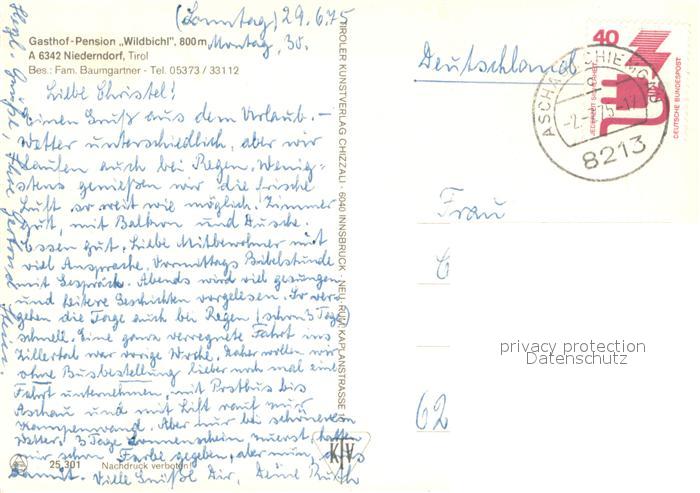 (Sonntag) 29.6.75
Gasthof-Pension „Wildbichl", 800 m Montag, 30.
A 6342 Niederndorf, Tirol
Bes.: Fam. Baumgartner - Tel. 05373 / 33112
Liebe Christel!
Einen Gruß aus dem Urlaub. –
Wetter unterschiedlich, aber wir
laufen auch bei Regen. Wenig-
stens genießen wir die frische
Luft so weit wie möglich. Zimmer
gut, mit Balkon und Dusche.
Essen gut. Liebe Mitbewohner mit
viel Ansprache. Vormittags Bibelstunde
mit Gespräch. Abends wird viel gesungen
und heitere Geschichten vorgelesen. So ver-
gehen die Tage auch bei Regen (schon 3 Tage)
schnell. Eine ganz verregnete Fahrt ins
Zillertal war vorige Woche. Daher wollen wir
ohne Busbestellung lieber noch mal eine
Fahrt unternehmen, mit Postbus bis
Aschau und mit Lift rauf zur
Kampenwand. Aber nur bei schönerem
Wetter. 3 Tage Sonnenschein zuerst, hatten
wir schon Farbe gegeben, aber nun,
damit. Viele Grüße Dir, Deine Ruth
Herzl. Grüße,
25.301 Nachdruck verboten!
TIROLER KUNSTVERLAG CHIZZALI · 6045 INNSBRUCK - NEU-RUM, KAPLANSTRASSE
KTV
Deutschland
40
JEDERZEIT SICHERHEIT
DEUTSCHE BUNDESPOST
ASCHAU CHIEMGAU
8213
Frau
62
privacy protection
Datenschutz